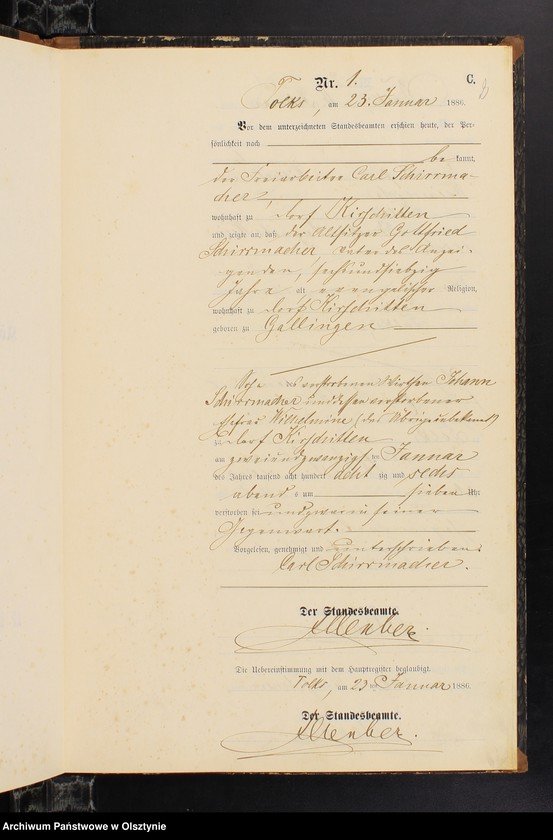 C.
Nr. 1.
Tolks, am 23. Januar 1886.
Vor dem unterzeichneten Standesbeamten erschien heute, der Per-
sönlichkeit nach
be kannt,
der Freiarbeiter Carl Schirrma-
cher,
wohnhaft zu Dorf Kirschitten
und zeigte an, daß der Altsitzer Gottfried
Schirrmacher, Vater des Anzei-
genden, sechsundsiebzig
Jahre alt evangelischer Religion,
wohnhaft zu Dorf Kirschitten
geboren zu Gallingen
Sohn des verstorbenen Wirthen Johann
Schirrmacher und dessen verstorbener
Ehefrau Wilhelmine (das Übrige unbekannt)
zu Dorf Kirschitten
am zweiundzwanzigsten Januar
des Jahres tausend acht hundert acht zig und sechs
abends um sieben Uhr
verstorben sei und zwar in seiner
Gegenwart.
Vorgelesen, genehmigt und unterschrieben.
Carl Schirrmacher.
Der Standesbeamte.
Die Uebereinstimmung mit dem Hauptregister beglaubigt.
Tolks, am 23 ten Januar 1886.
Der Standesbeamte.
Archiwum Państwowe w Olsztynie